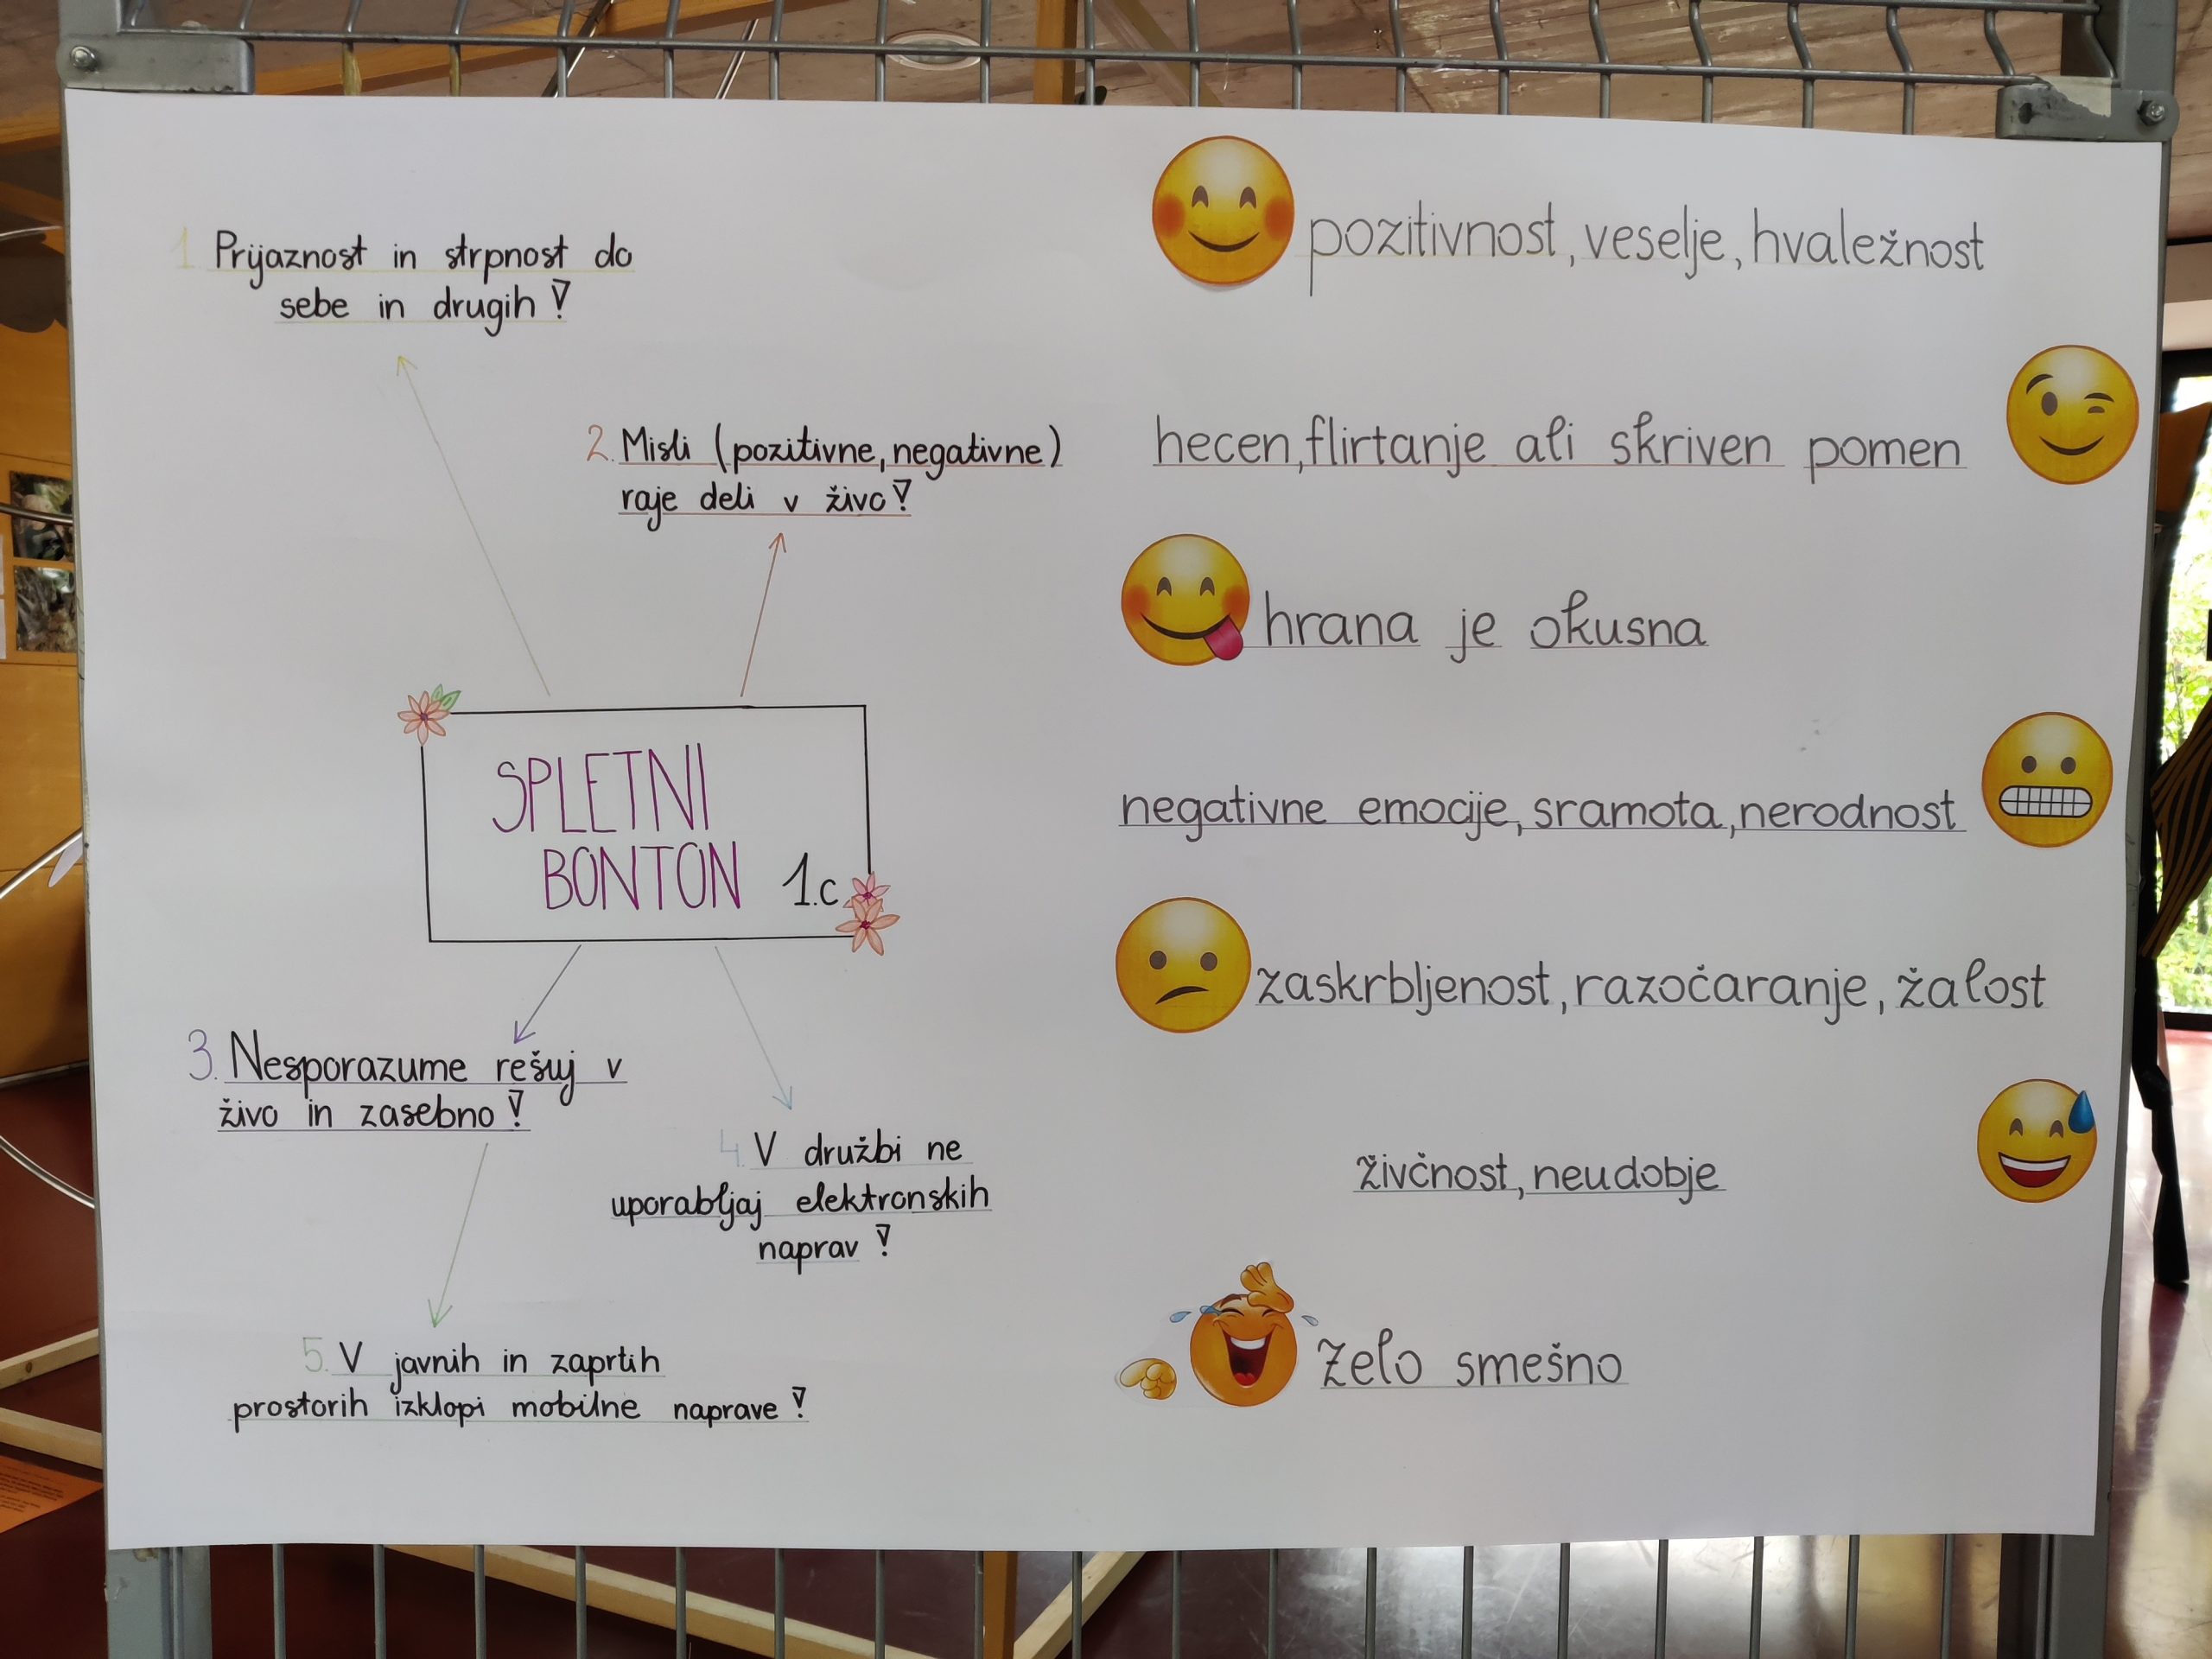 1. Prijaznost in strpnost do
sebe in drugih!
2. Misli (pozitivne, negativne)
raje deli v živo!
SPLETNI
BONTON 1.c
3. Nesporazume rešuj v
živo in zasebno!
4. V družbi ne
uporabljaj elektronskih
naprav!
5. V javnih in zaprtih
prostorih izklopi mobilne naprave!
pozitivnost, veselje, hvaležnost
hecen, flirtanje ali skriven pomen
hrana je okusna
negativne emocije, sramota, nerodnost
zaskrbljenost, razočaranje, žalost
živčnost, neudobje
zelo smešno